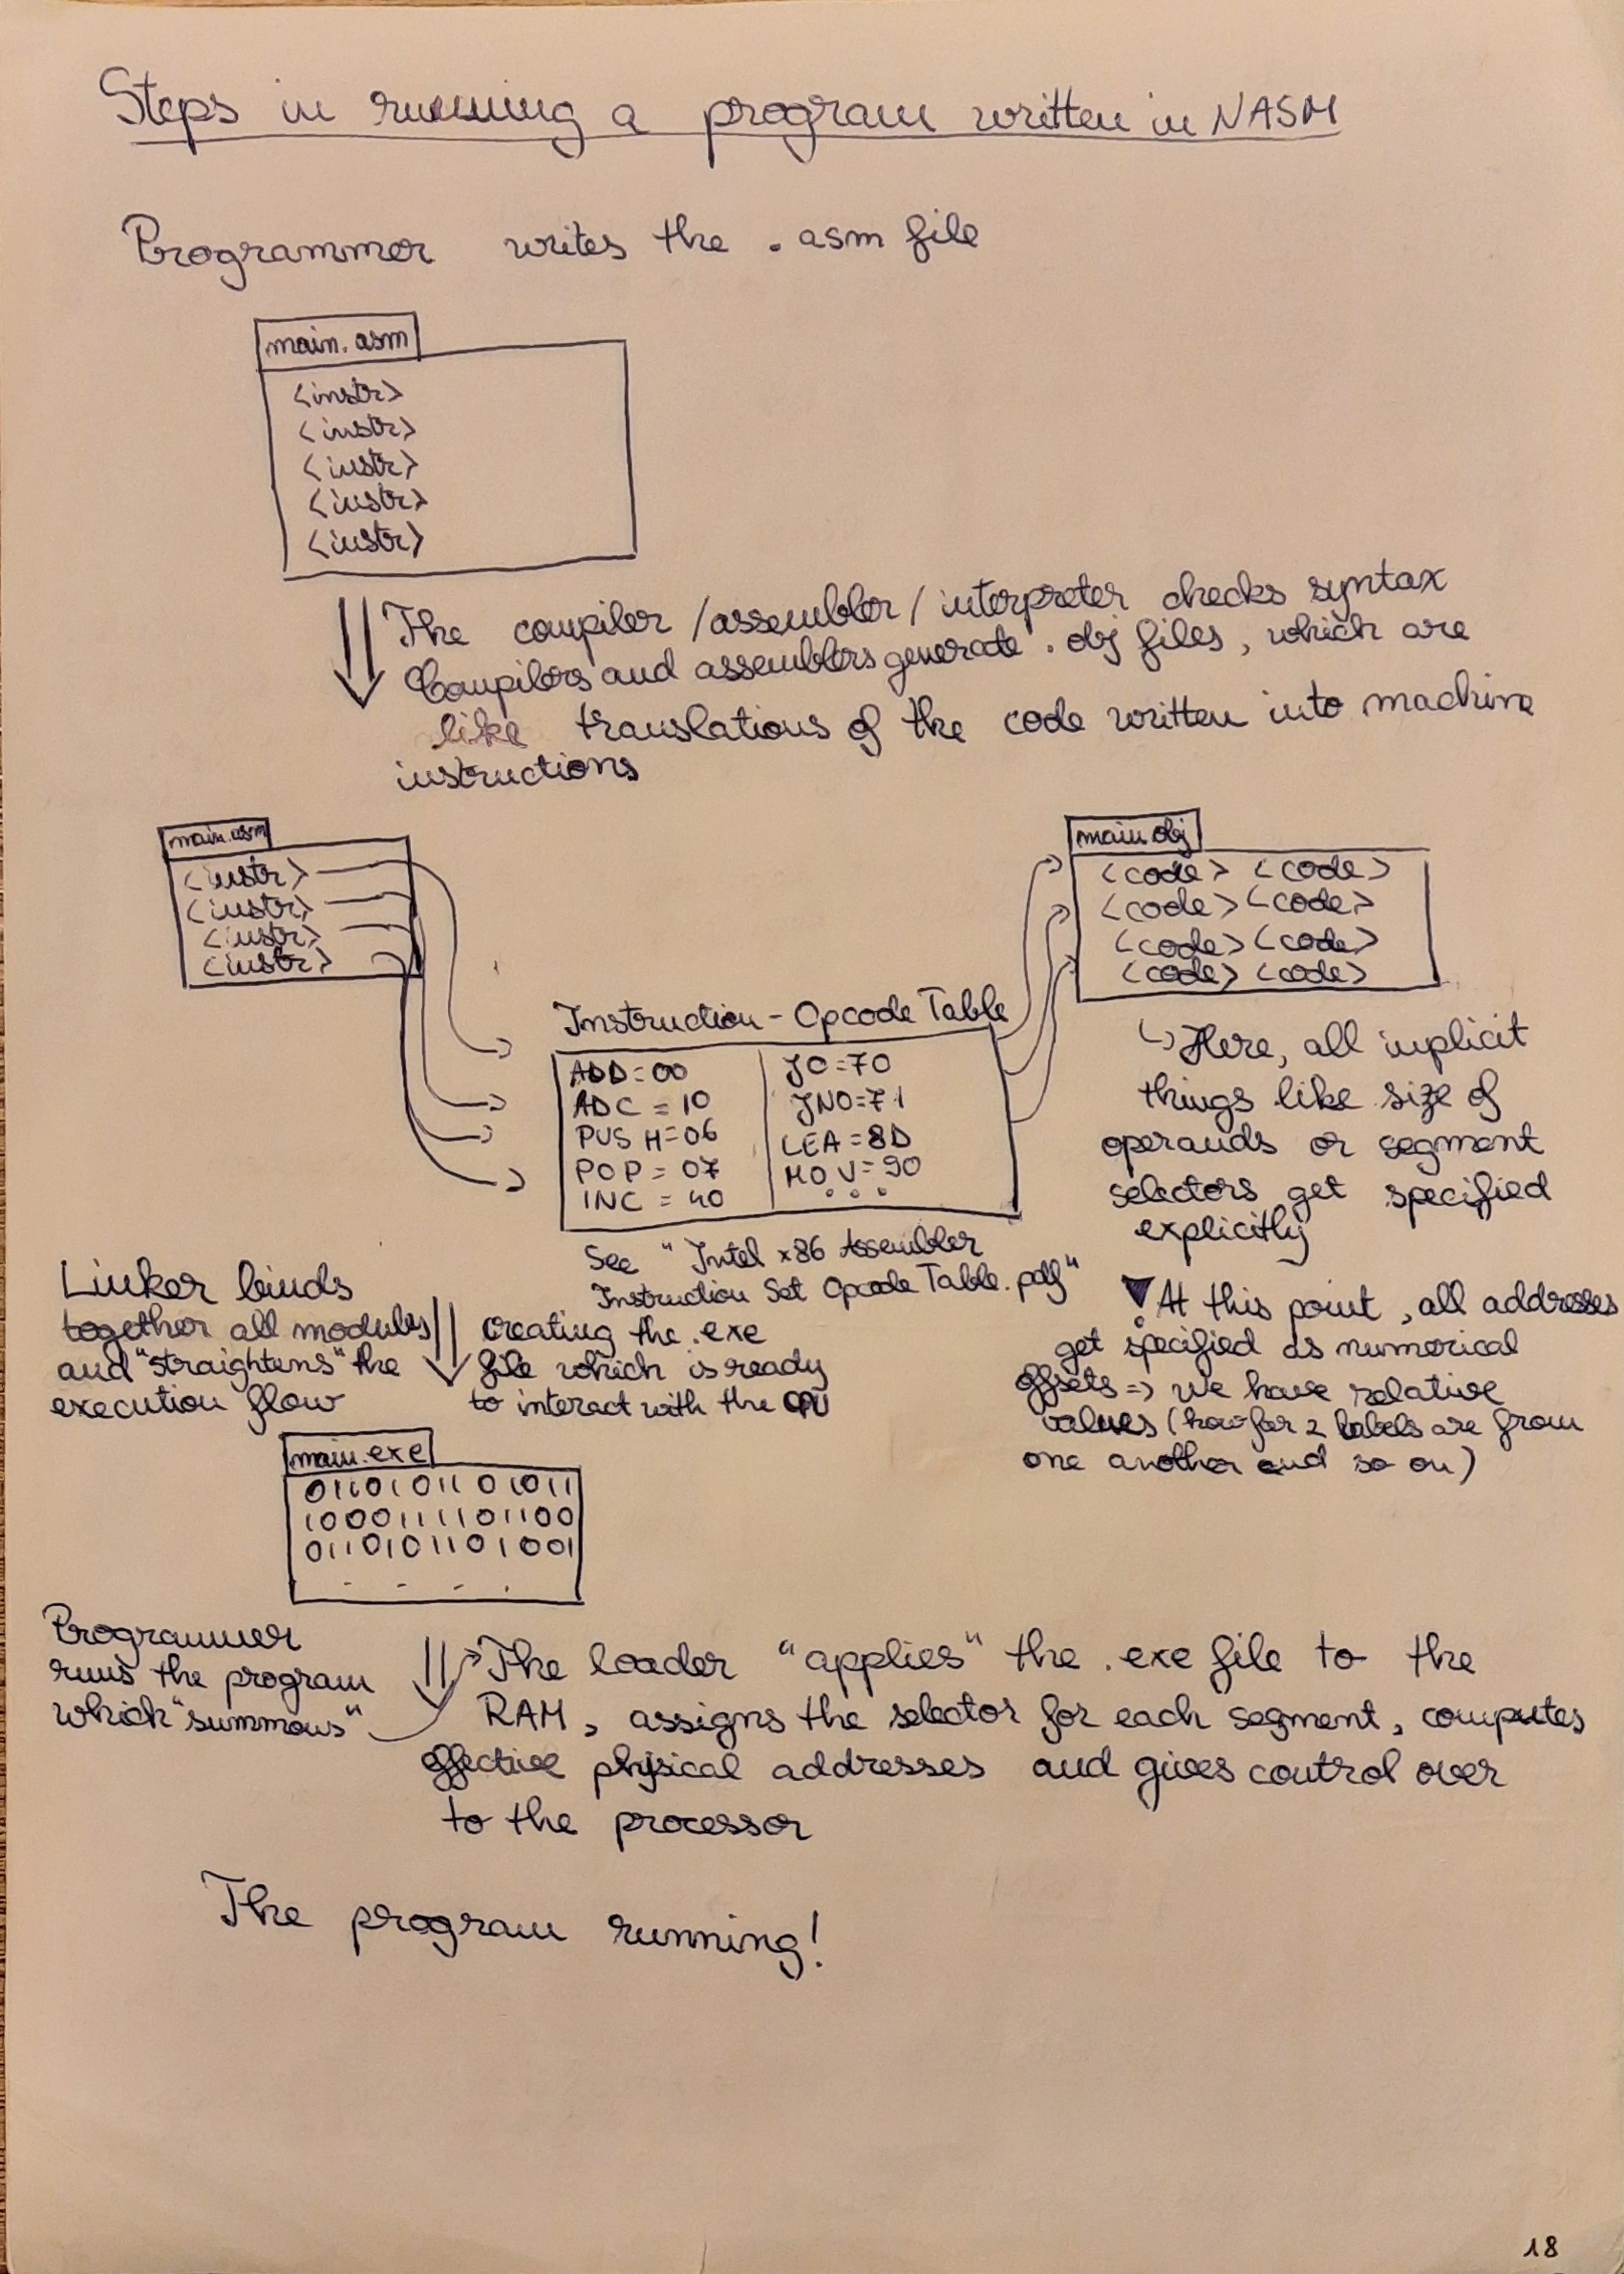 Steps in running a program written in NASM
Programmer writes the .asm file
main.asm
<instr>
<instr>
<instr>
<instr>
<instr>
The compiler/assembler/interpreter checks syntax
Compilers and assemblers generate .obj files, which are
like translations of the code written into machine
instructions
main.asm
<instr>
<instr>
<instr>
<instr>
main.obj
<code> <code>
<code> <code>
<code> <code>
<code> <code>
Instruction - Opcode Table
ADD=00 JO=70
ADC=10 JNO=71
PUSH=06 LEA=8D
POP=07 MOV=90
INC=40 ...
See "Intel x86 Assembler
Instruction Set Opcode Table.pdf"
Here, all implicit
things like size of
operands or segment
selectors get specified
explicitly
At this point, all addresses
get specified as numerical
offsets => we have relative
values (how far 2 labels are from
one another and so on)
Linker binds
together all modules
and "straightens" the
execution flow
creating the .exe
file which is ready
to interact with the CPU
main.exe
0110101101011
1000111101100
0110101101001
. . . .
Programmer
runs the program
which "summons"
The loader "applies" the .exe file to the
RAM, assigns the selector for each segment, computes
effective physical addresses and gives control over
to the processor
The program running!
18